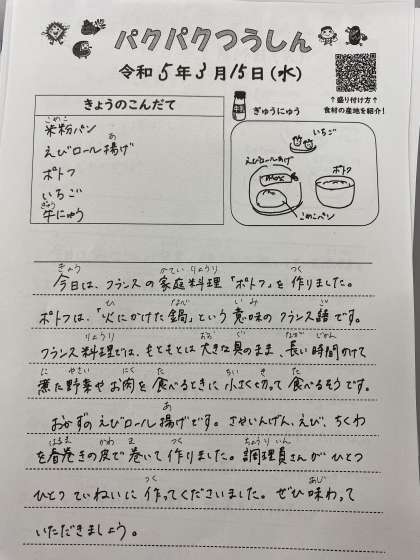 パクパクつうしん
令和5年3月15日(水)
きょうのこんだて
米粉パン
えびロール揚げ
ポトフ
いちご
牛にゅう
ぎゅうにゅう
↑盛り付け方↑
食材の産地を紹介!
いちご
えびロールあげ
ポトフ
こめこパン
今日は、フランスの家庭料理「ポトフ」を作りました。
ポトフは、「火にかけた鍋」という意味のフランス語です。
フランス料理では、もともとは大きな具のまま、長い時間かけて
煮た野菜やお肉を食べるときに小さく切って食べるそうです。
おかずのえびロール揚げです。さやいんげん、えび、ちくわ
を春巻きの皮で巻いて作りました。調理員さんがひとつ
ひとつていねいに作ってくださいました。ぜひ味わって
いただきましょう。